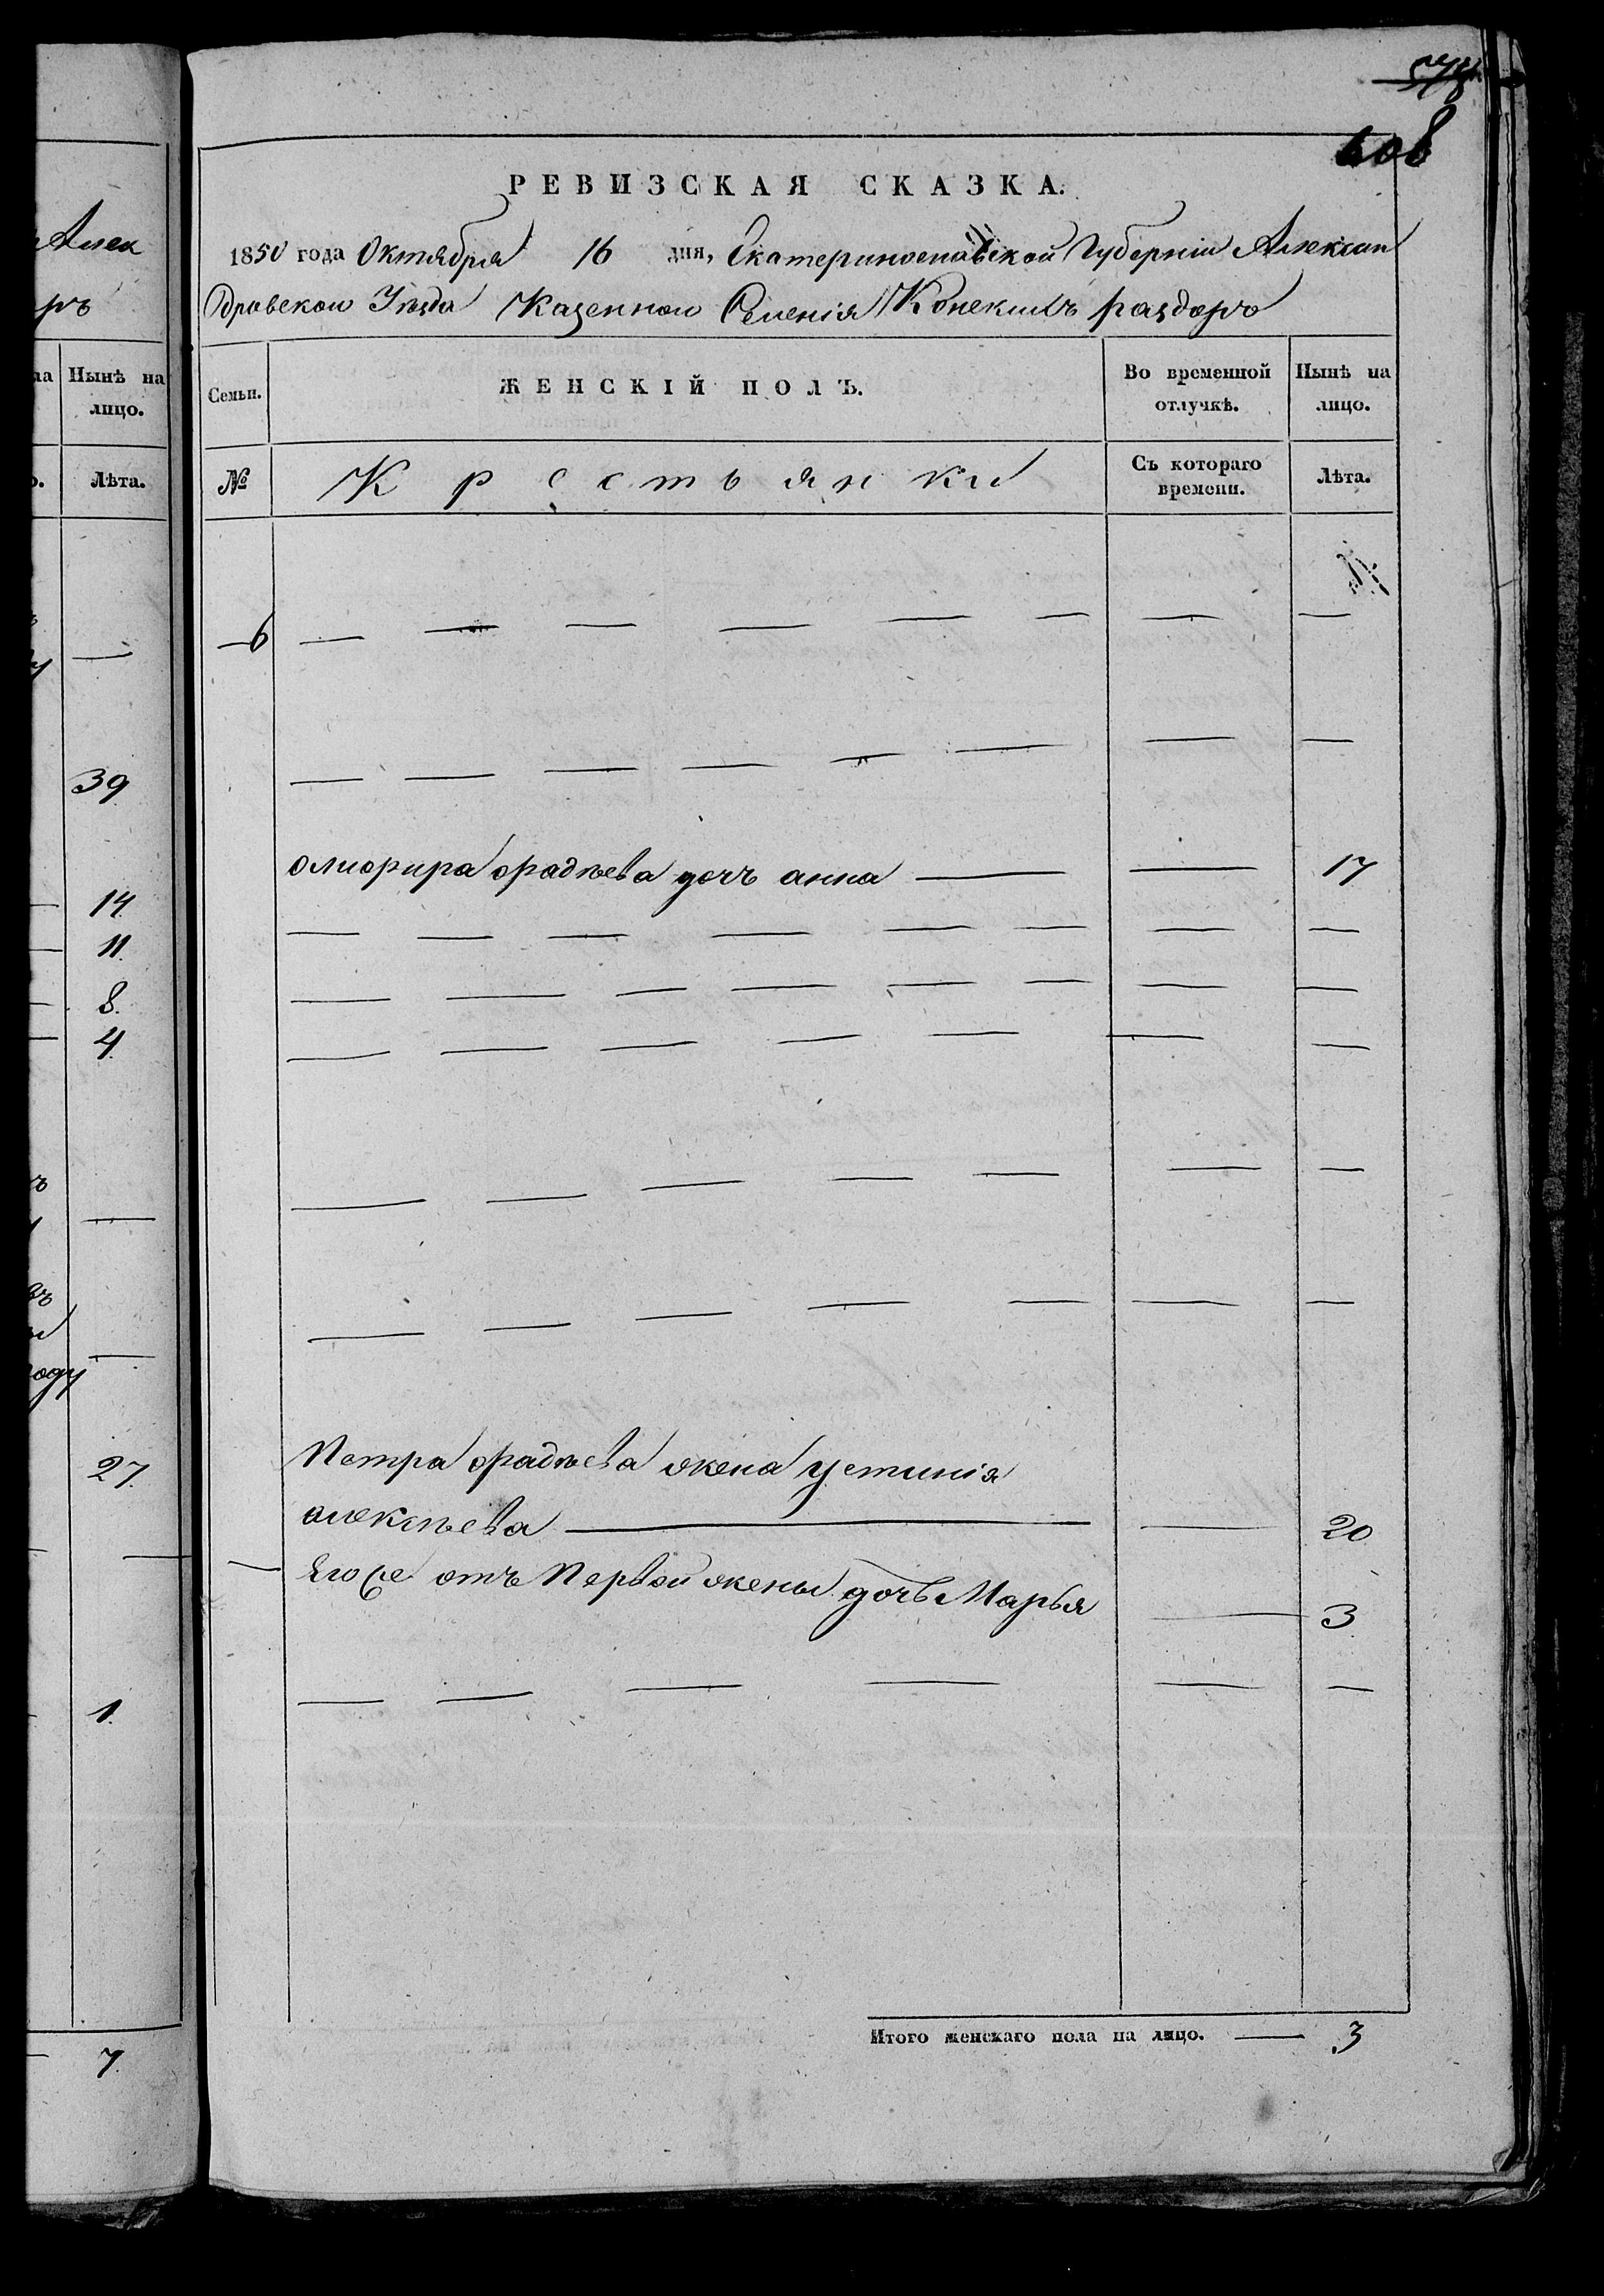 Алек
ръ
на Нынѣ на
лицо.
Лѣта.
39
14
11
8.
4
оду
27.
1.
7.
608
РЕВИЗСКАЯ СКАЗКА.
1850 года Октября 16 дня, Екатеринославской Губерніи Алексан
дровскаго Уѣзда Казеннаго Селенія Конскихъ раздоръ
Семьи. ЖЕНСКІЙ ПОЛЪ. Во временной отлучкѣ. Нынѣ на лицо.
№ Крестьянки Съ котораго времени. Лѣта.
6
фадѣева дочь анна 17
Петра фадѣева жена устинія
алексѣева 20
Его же отъ Первой жены дочь Марья 3
Итого женскаго пола на лицо. 3